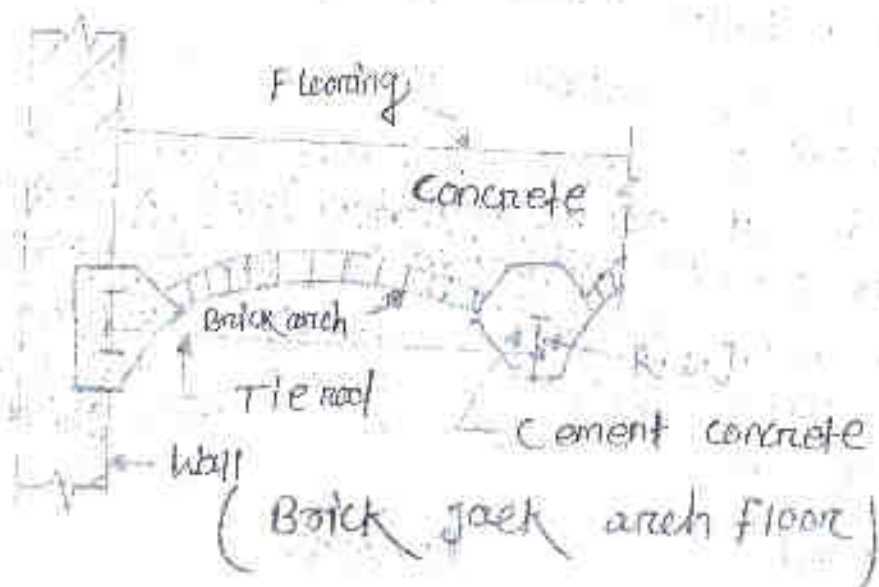 Flooring
Concrete
Brick arch
R.S.J.
Tie rod
Cement concrete
Wall
(Brick Jack arch floor)